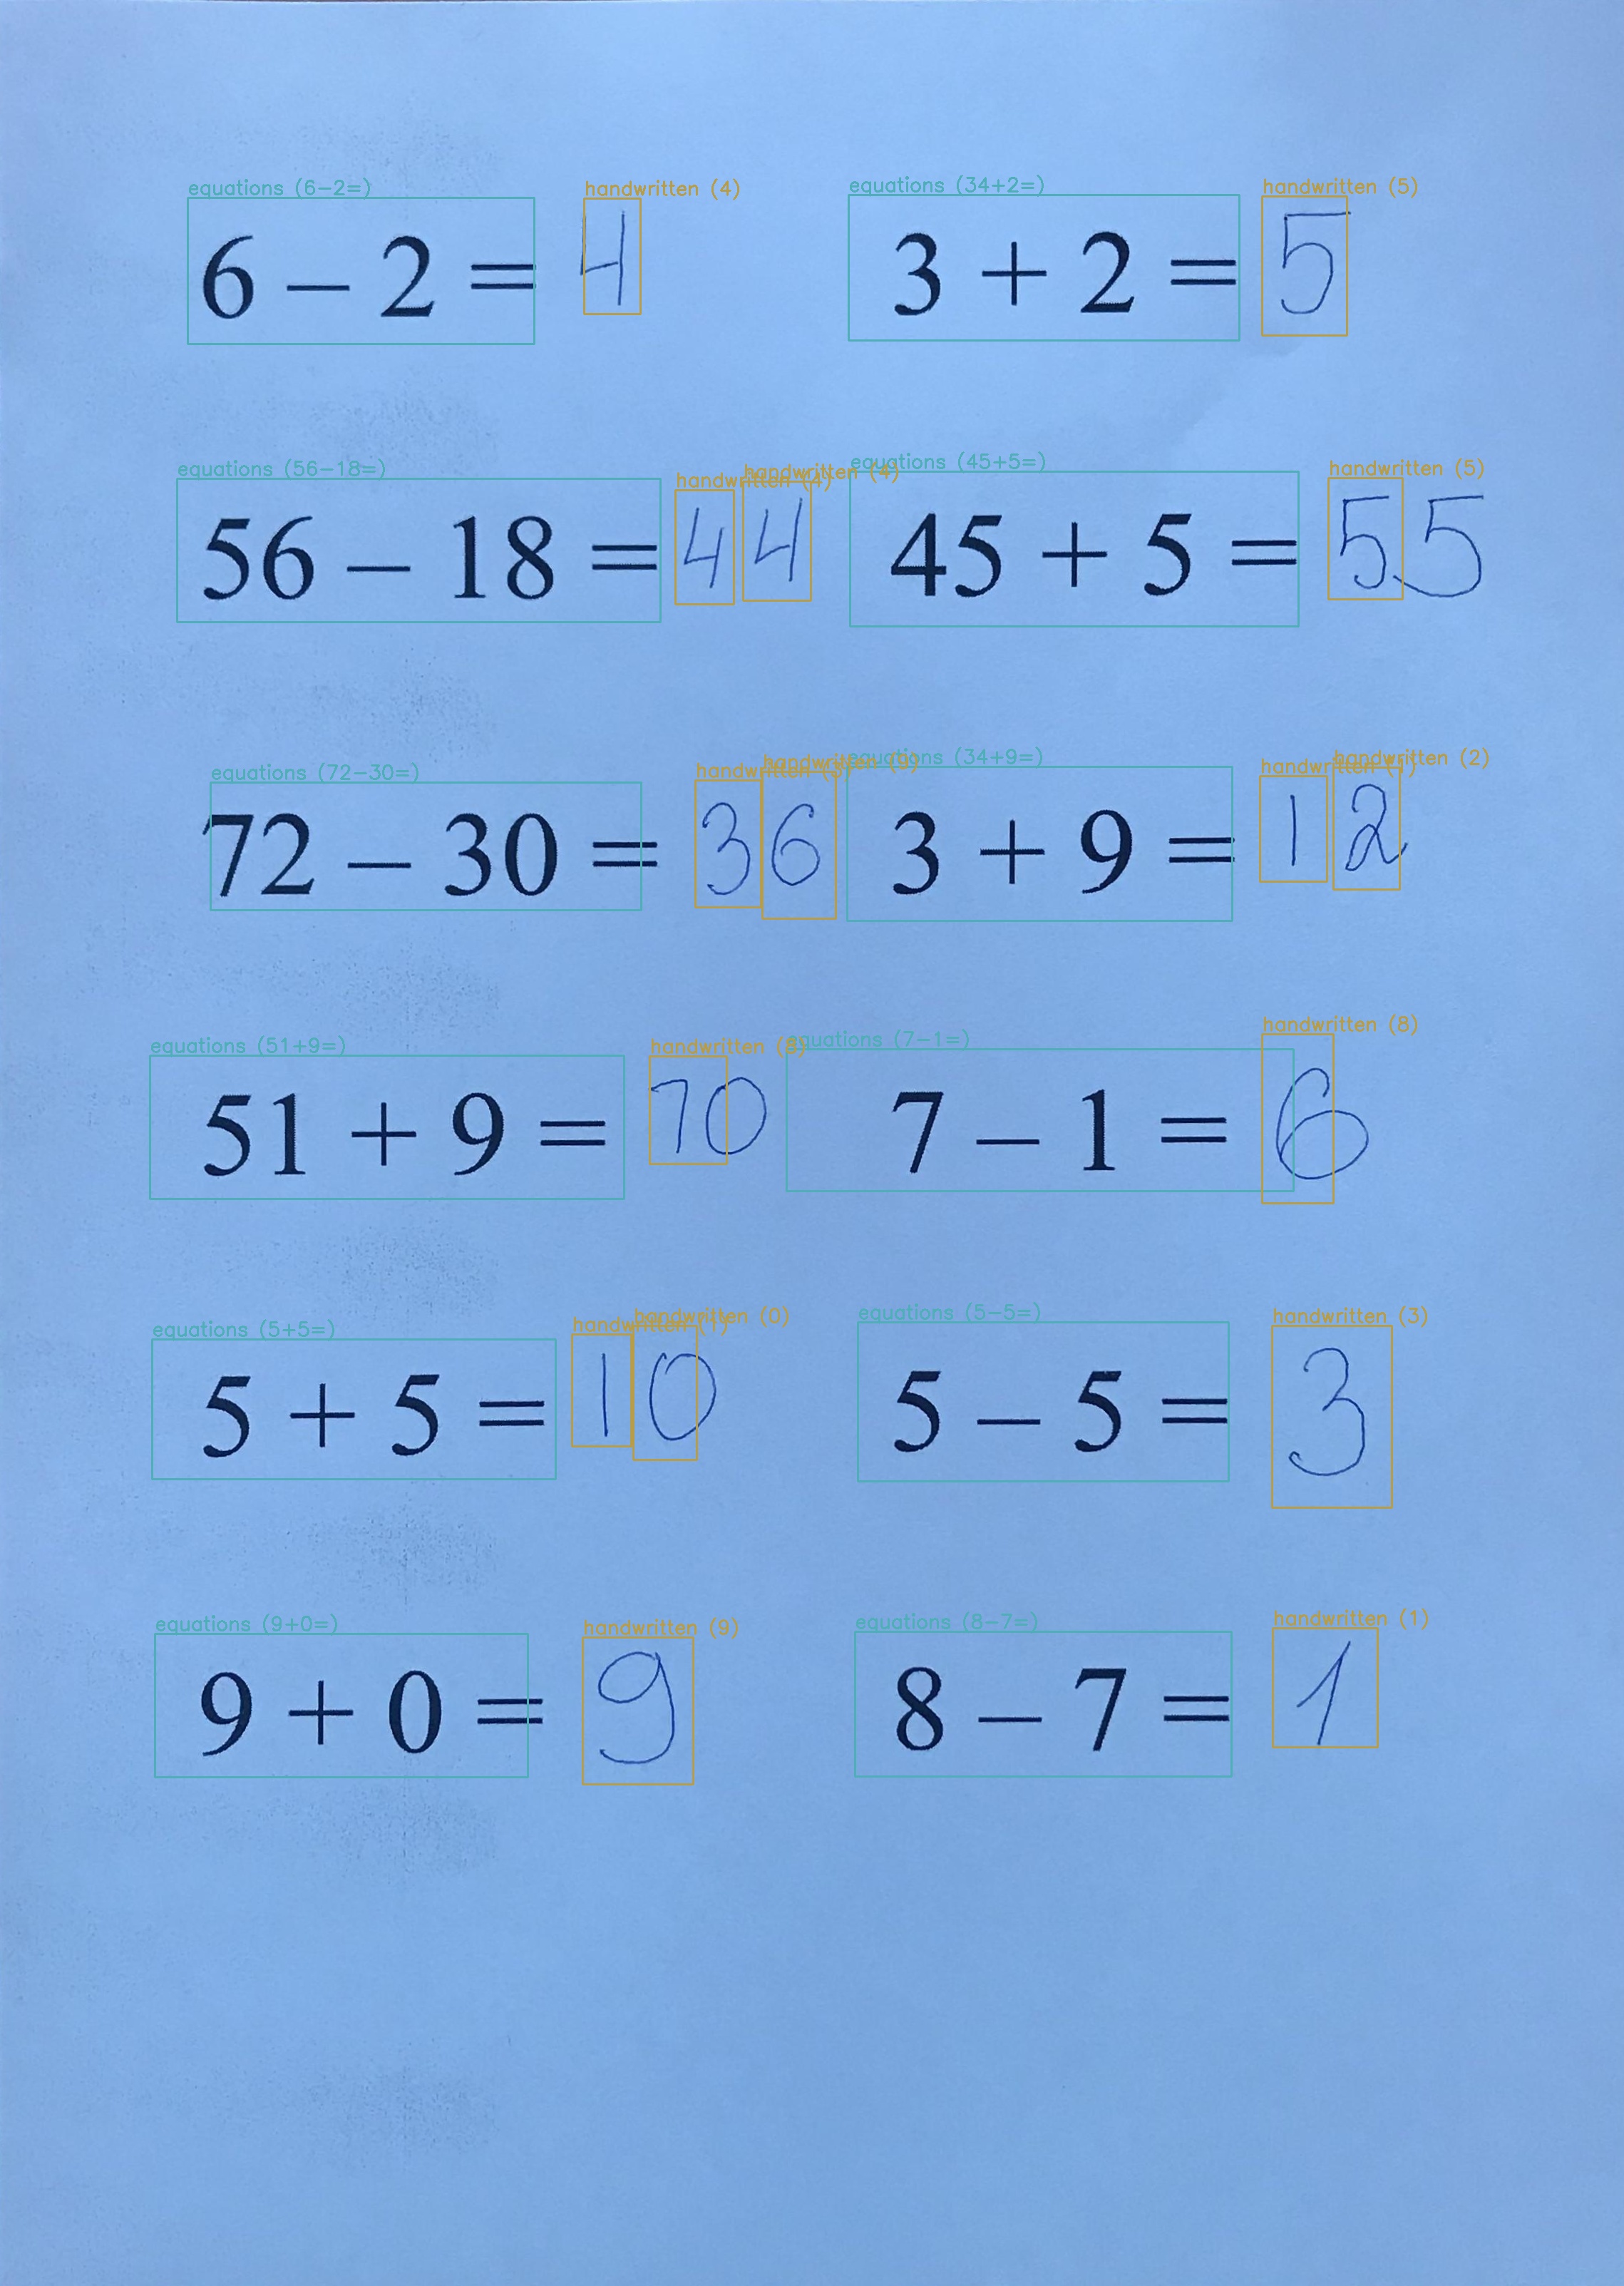 equations (6-2=) handwritten (4) equations (34+2=) handwritten (5)
6 – 2 = 4 3 + 2 = 5
equations (56-18=) handwritten (4) handwritten (4) equations (45+5=) handwritten (5)
56 – 18 = 44 45 + 5 = 55
equations (72-30=) handwritten equations (34+9=) handwritten (1) handwritten (2)
72 – 30 = 36 3 + 9 = 12
equations (51+9=) handwritten equations (7-1=) handwritten (8)
51 + 9 = 70 7 – 1 = 6
equations (5+5=) handwritten (1) handwritten (0) equations (5-5=) handwritten (3)
5 + 5 = 10 5 – 5 = 3
equations (9+0=) handwritten (9) equations (8-7=) handwritten (1)
9 + 0 = 9 8 – 7 = 1